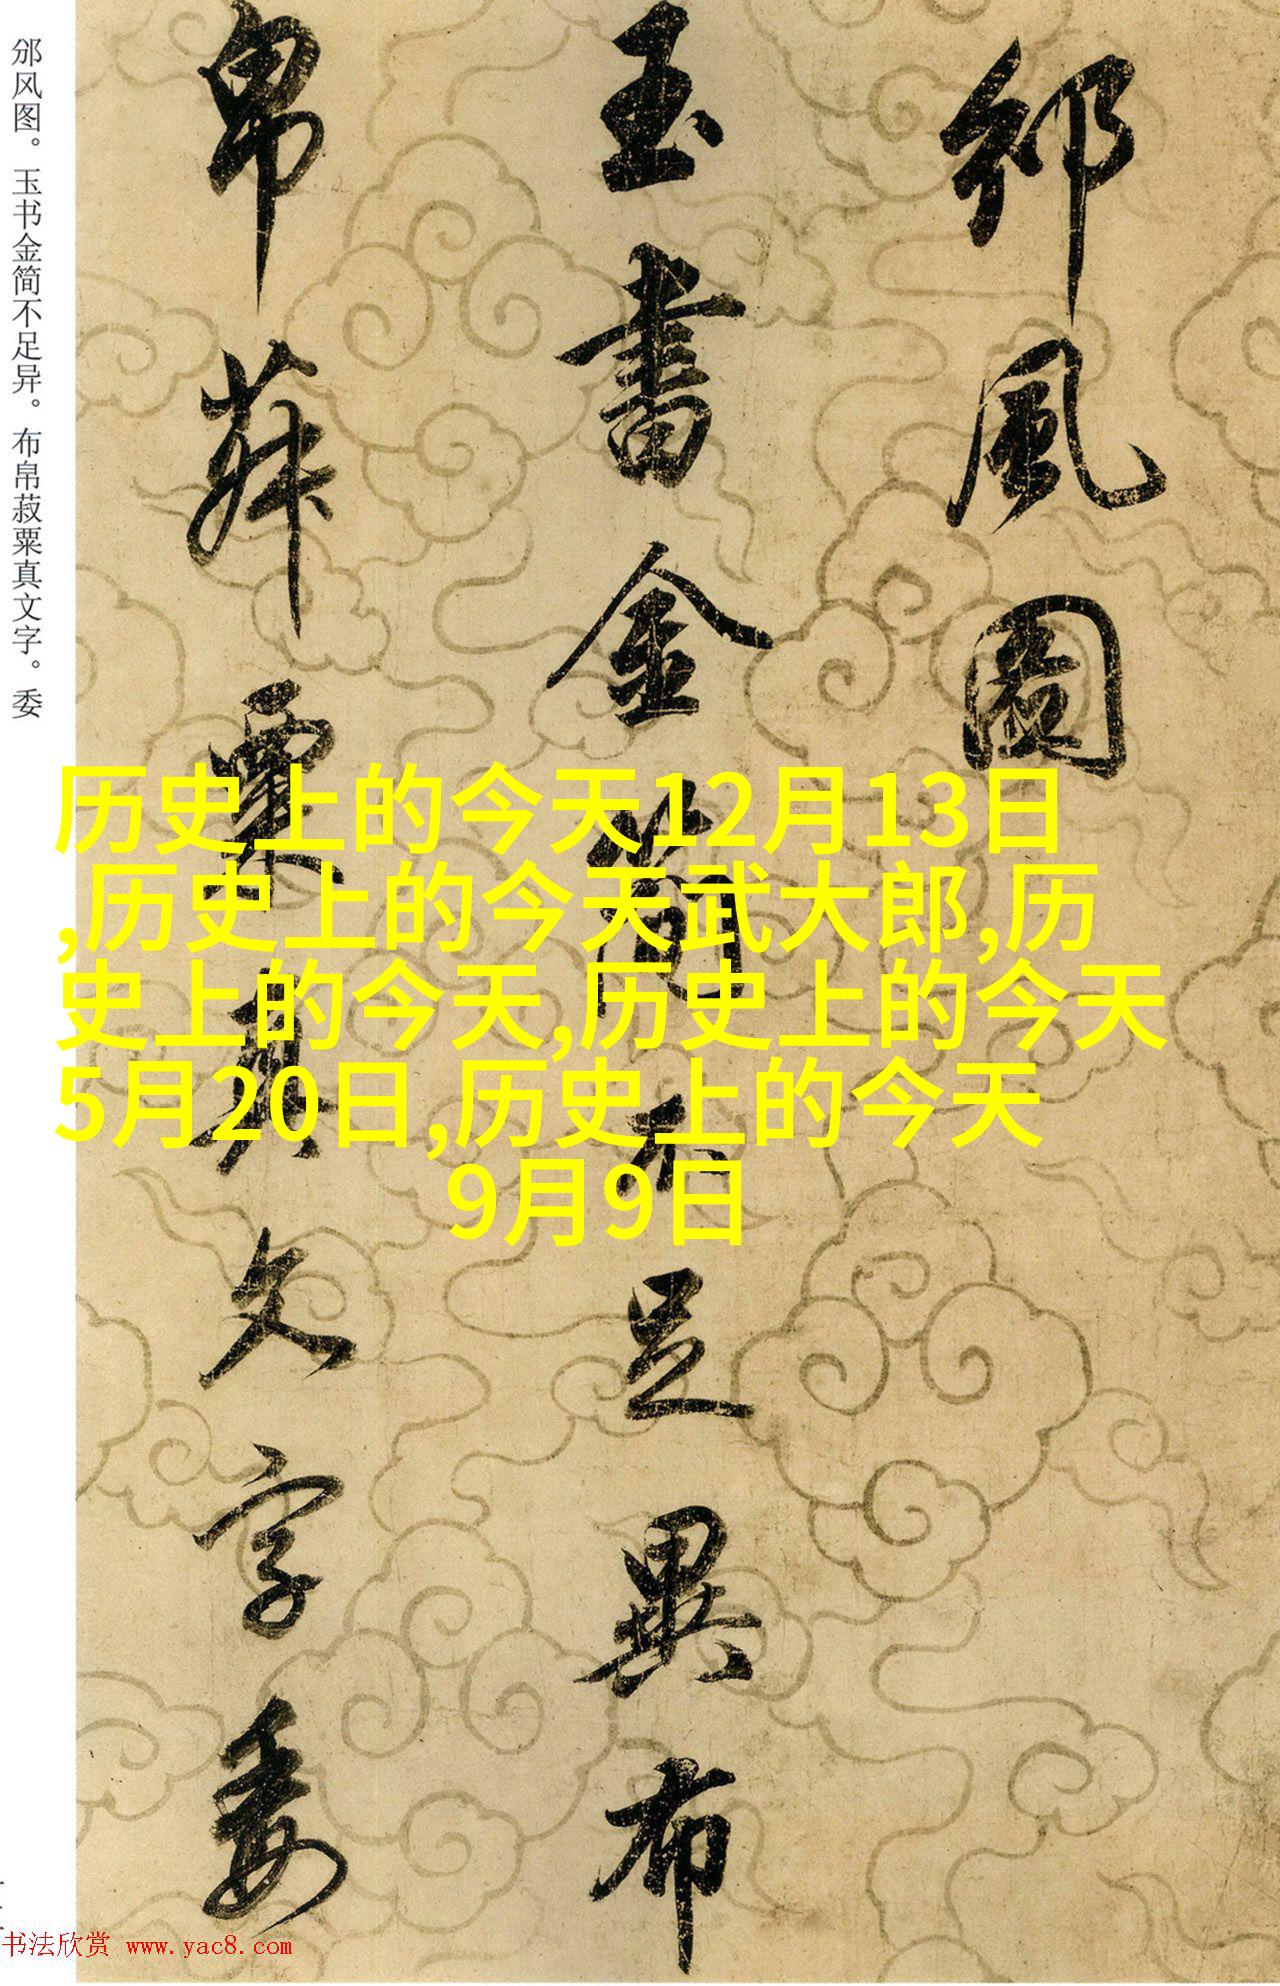 邠风图。玉书金简不足异。布帛菽粟真文字。委
邠風圖
玉書金簡不足異布
帛菽粟真文字委
历史上的今天12月13日
,历史上的今天武大郎,历
史上的今天,历史上的今天
5月20日,历史上的今天
9月9日
书法欣赏 www.yac8.com